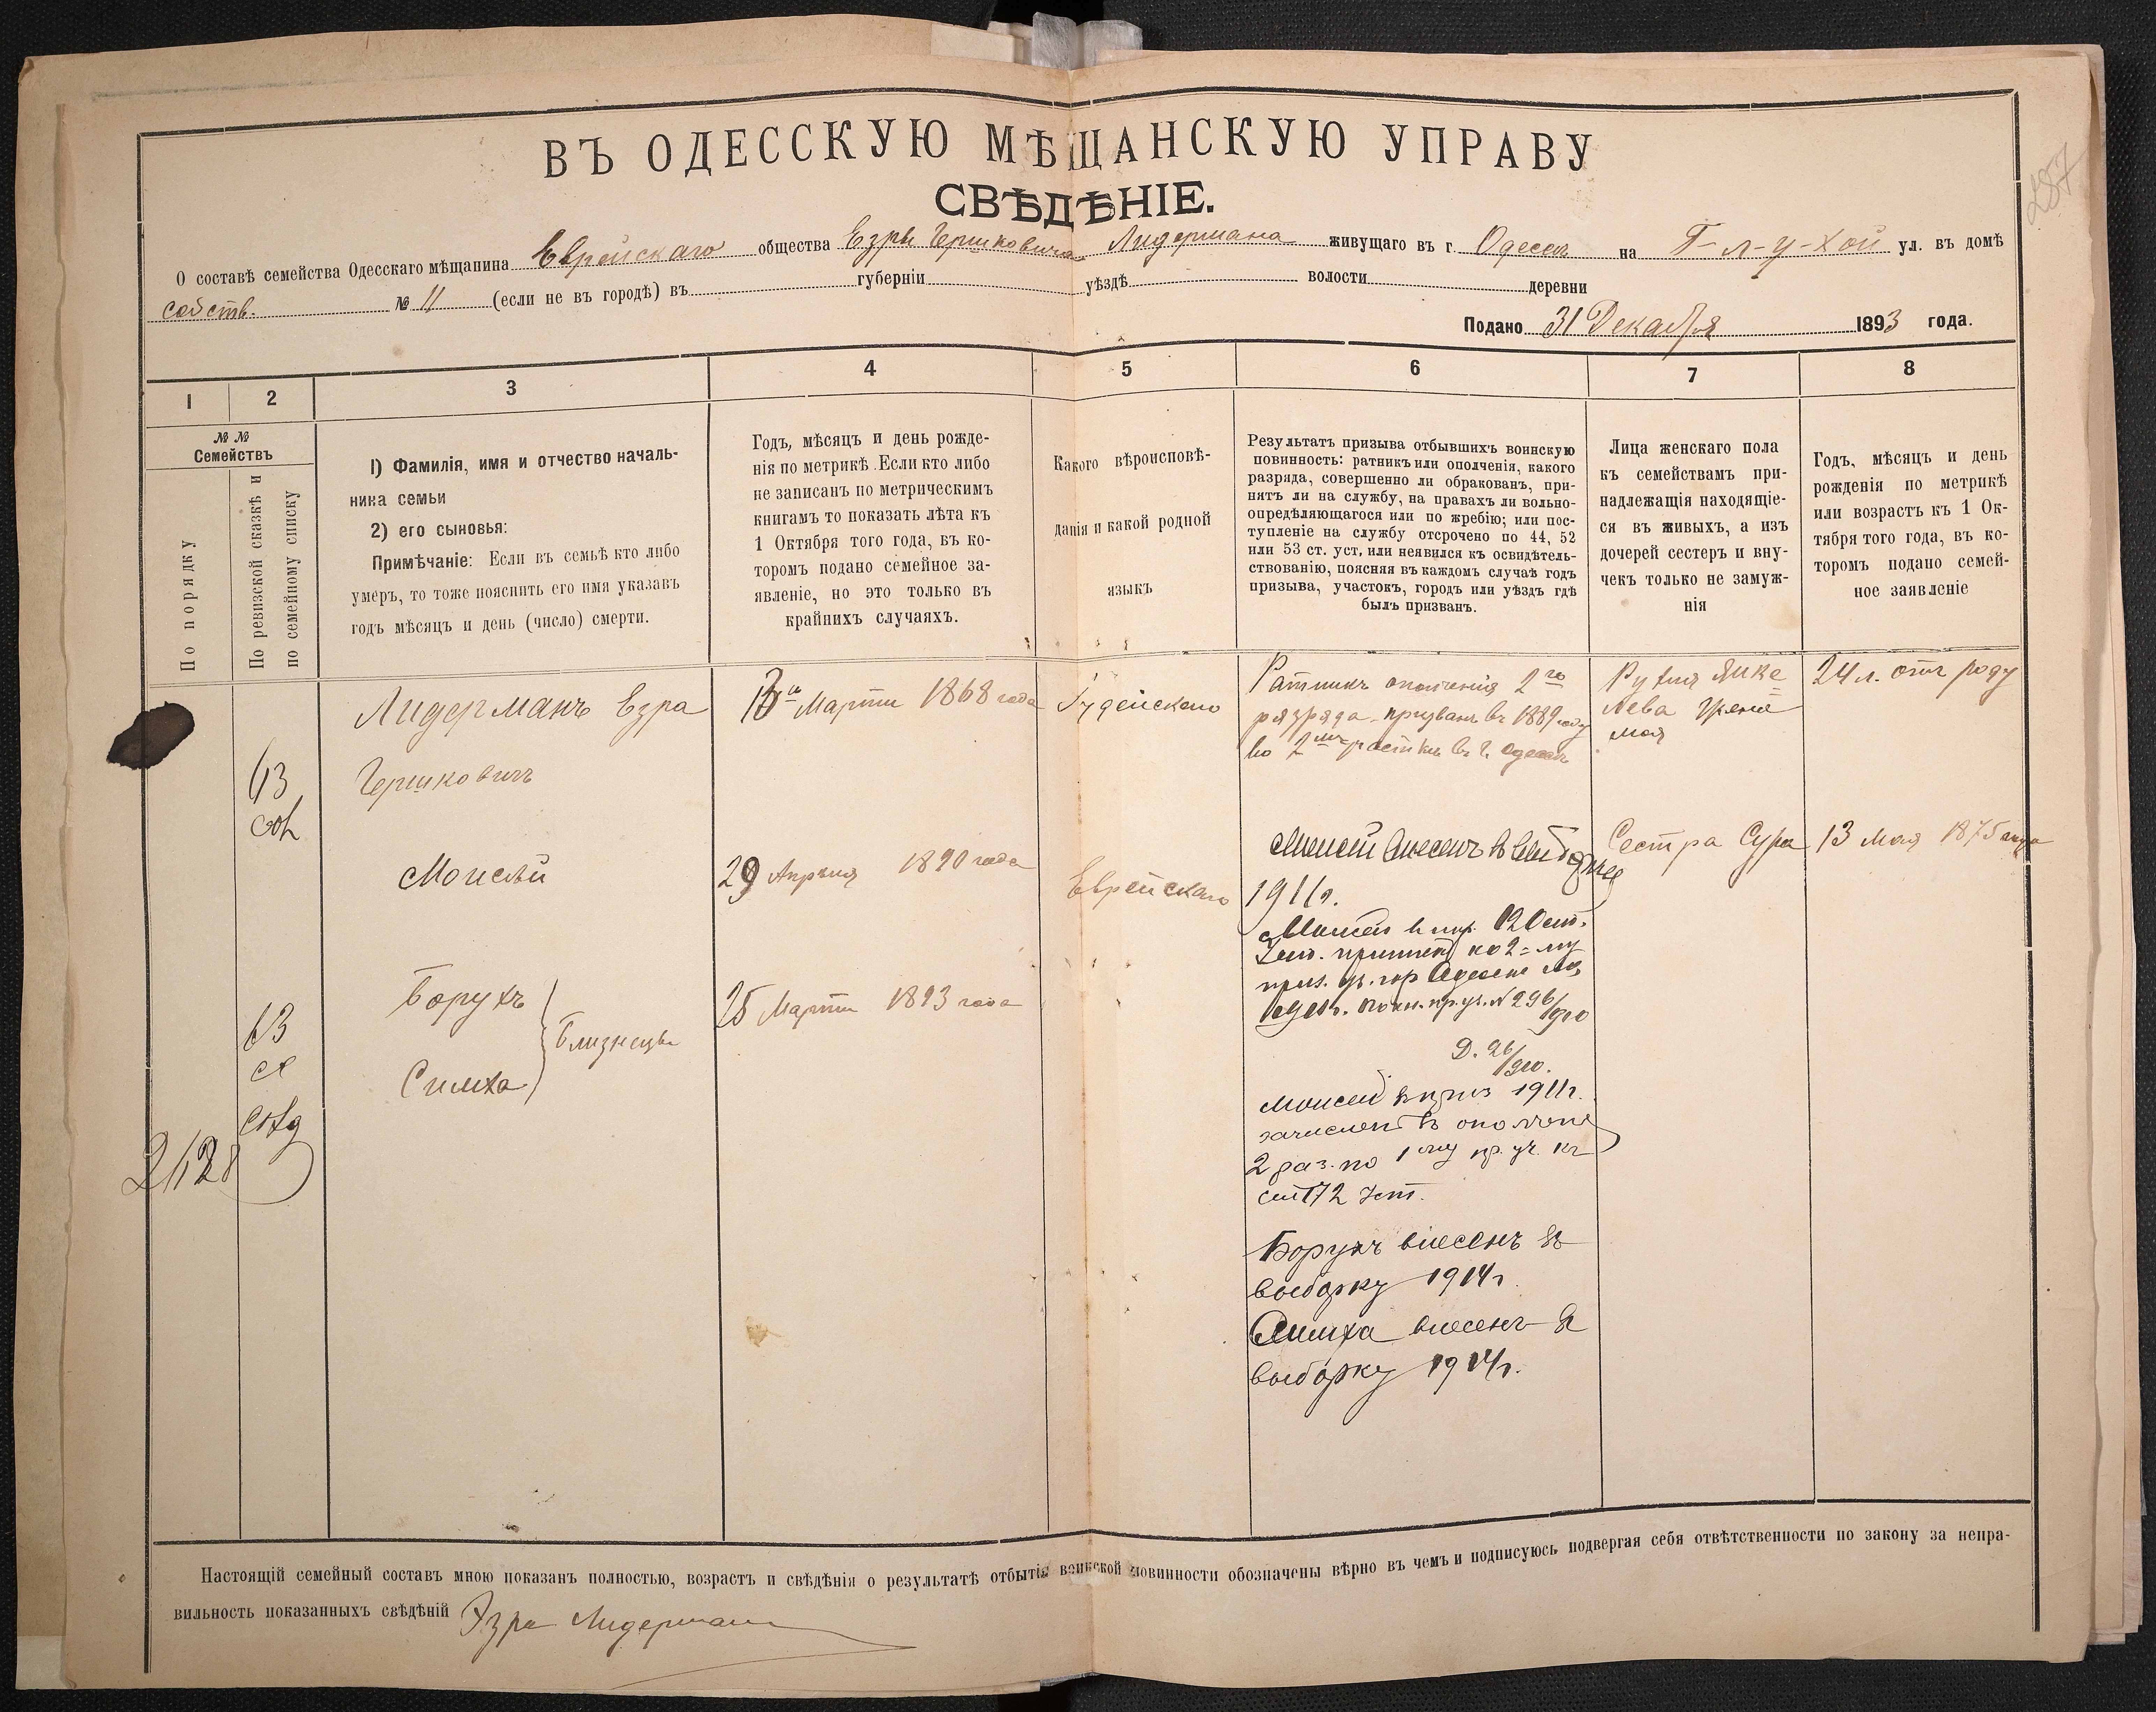 287
ВЪ ОДЕССКУЮ МѢЩАНСКУЮ УПРАВУ
СВѢДѢНІЕ.
О составѣ семейства Одесскаго мѣщанина Еврейскаго общества Езры Гершковича Лидермана живущаго въ г. Одессѣ на Г-л-у-хой ул. въ домѣ
собств. № 11 (если не въ городѣ) въ губерніи уѣздѣ волости деревни
Подано 31 Декабря 1893 года.
1 2 3 4 5 6 7 8
№ №
Семействъ
По порядку
По ревизской сказкѣ и
по семейному списку
1) Фамилія, имя и отчество началь-
ника семьи
2) его сыновья:
Примѣчаніе: Если въ семьѣ кто либо
умеръ, то тоже пояснить его имя указавъ
годъ мѣсяцъ и день (число) смерти.
Годъ, мѣсяцъ и день рожде-
нія по метрикѣ. Если кто либо
не записанъ по метрическимъ
книгамъ то показать лѣта къ
1 Октября того года, въ ко-
торомъ подано семейное за-
явленіе, но это только въ
крайнихъ случаяхъ.
Какого вѣроисповѣ-
данія и какой родной
языкъ
Результатъ призыва отбывшихъ воинскую
повинность: ратникъ или ополченія, какого
разряда, совершенно ли обракованъ, при-
нятъ ли на службу, на правахъ ли вольно-
опредѣляющагося или по жребію; или пос-
тупленіе на службу отсрочено по 44, 52
или 53 ст. уст, или неявился къ освидѣтель-
ствованію, поясняя въ каждомъ случаѣ годъ
призыва, участокъ, городъ или уѣздъ гдѣ
былъ призванъ.
Лица женскаго пола
къ семействамъ при-
надлежащія находящіе-
ся въ живыхъ, а изъ
дочерей сестеръ и вну-
чекъ только не замуж-
нія
Годъ, мѣсяцъ и день
рожденія по метрикѣ
или возрастъ къ 1 Ок-
тября того года, въ ко-
торомъ подано семей-
ное заявленіе
Лидерманъ Езра
Гершковичъ
Марта 1868 года
Іудейскаго
Ратникъ ополченія 2го
разряда призванъ въ 1889 году
во 2мъ участкѣ въ г. Одессѣ
24 л. отъ роду
Моисѣй
29 Апрѣля 1890 года
Еврейскаго
Моисей внесенъ въ выборку
1911 г.
Сестра Сура
13 Мая 1875 года
Борухъ
Симха
Близнецы
25 Марта 1893 года
№ 296/910
Д. 26/910.
Моисей въ приз 1911 г.
зачисленъ въ ополчен
2 раз. по 1му пр. уч. къ
Борухъ внесенъ въ
выборку 1914 г.
Симха внесенъ въ
выборку 1914 г.
2128
Настоящій семейный составъ мною показанъ полностью, возрастъ и свѣдѣнія о результатѣ отбытія воинской повинности обозначены вѣрно въ чемъ и подписуюсь подвергая себя отвѣтственности по закону за непра-
вильность показанныхъ свѣдѣній Эзра Лидерман